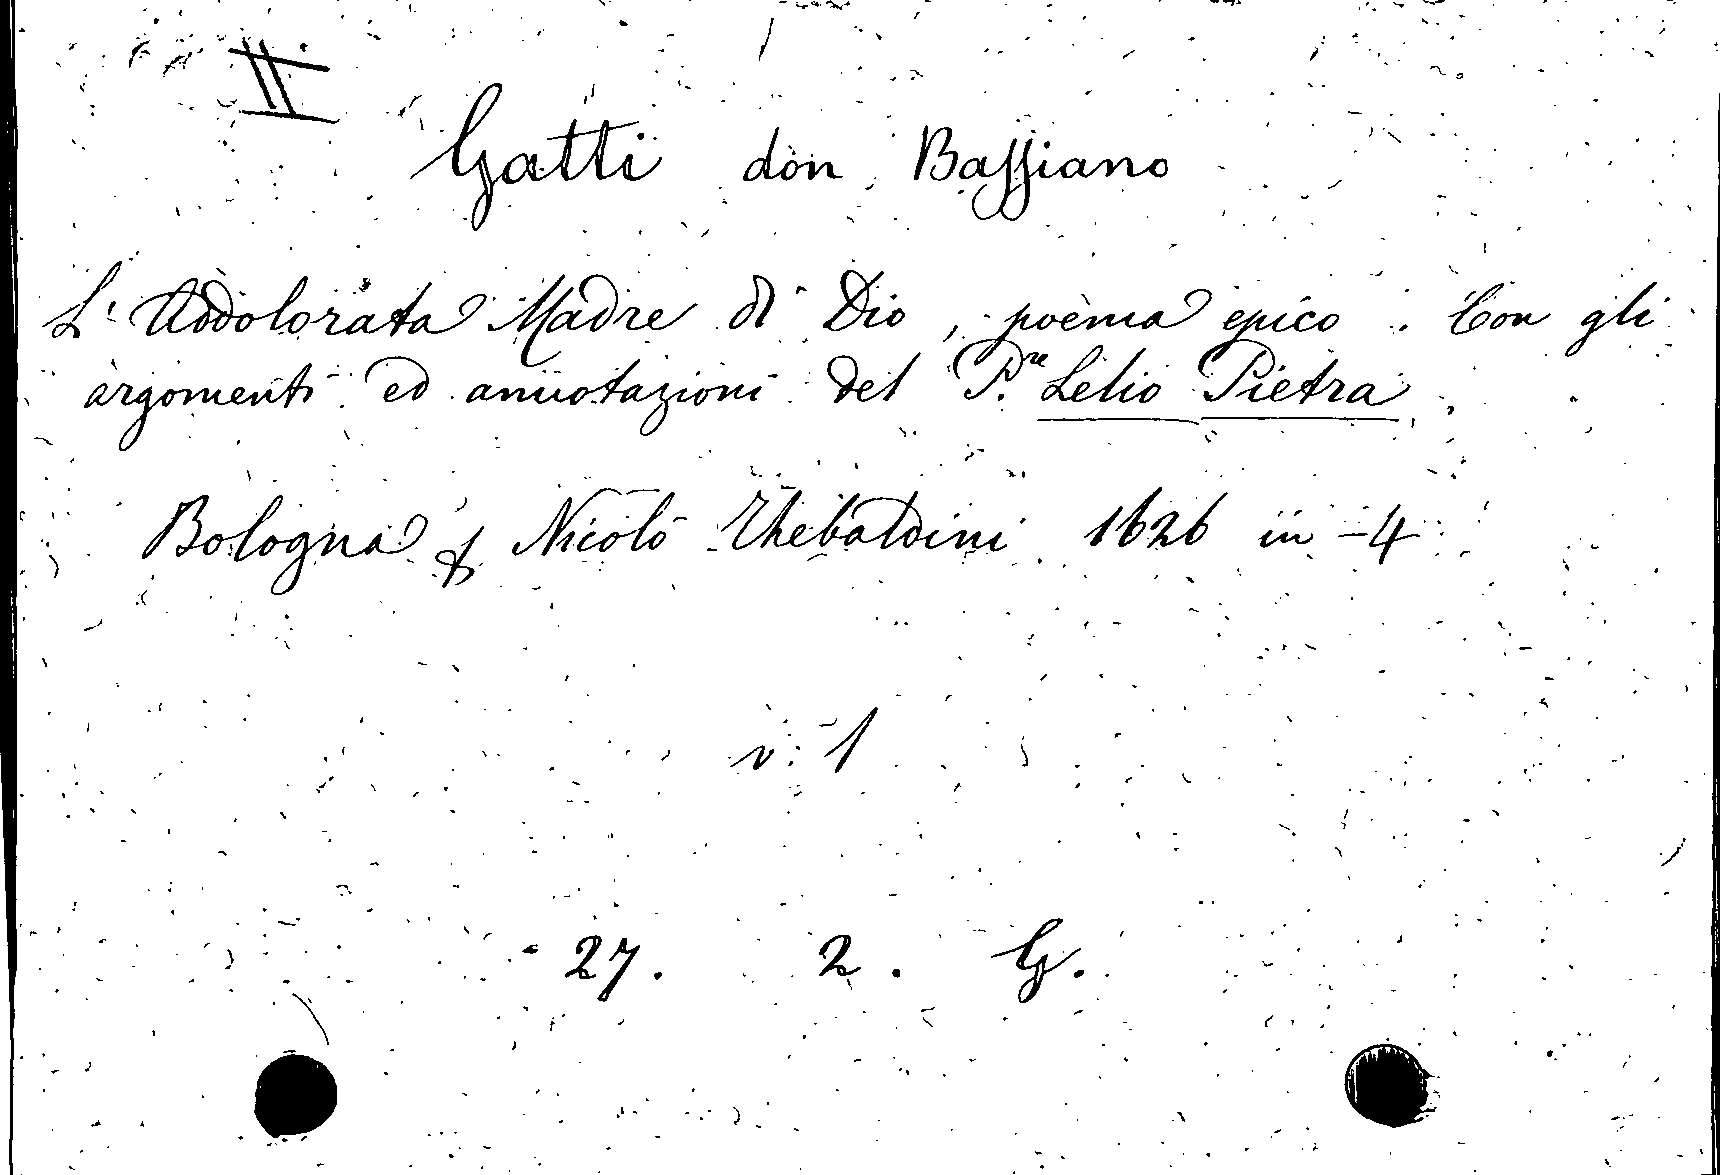 II
Gatti don Bassiano
L'Addolorata Madre di Dio, poema epico. Con gli
argomenti ed annotazioni del P.re Lelio Pietra.
Bologna, Nicolò Thebaldini 1626 in-4
v. 1
27. 2. G.